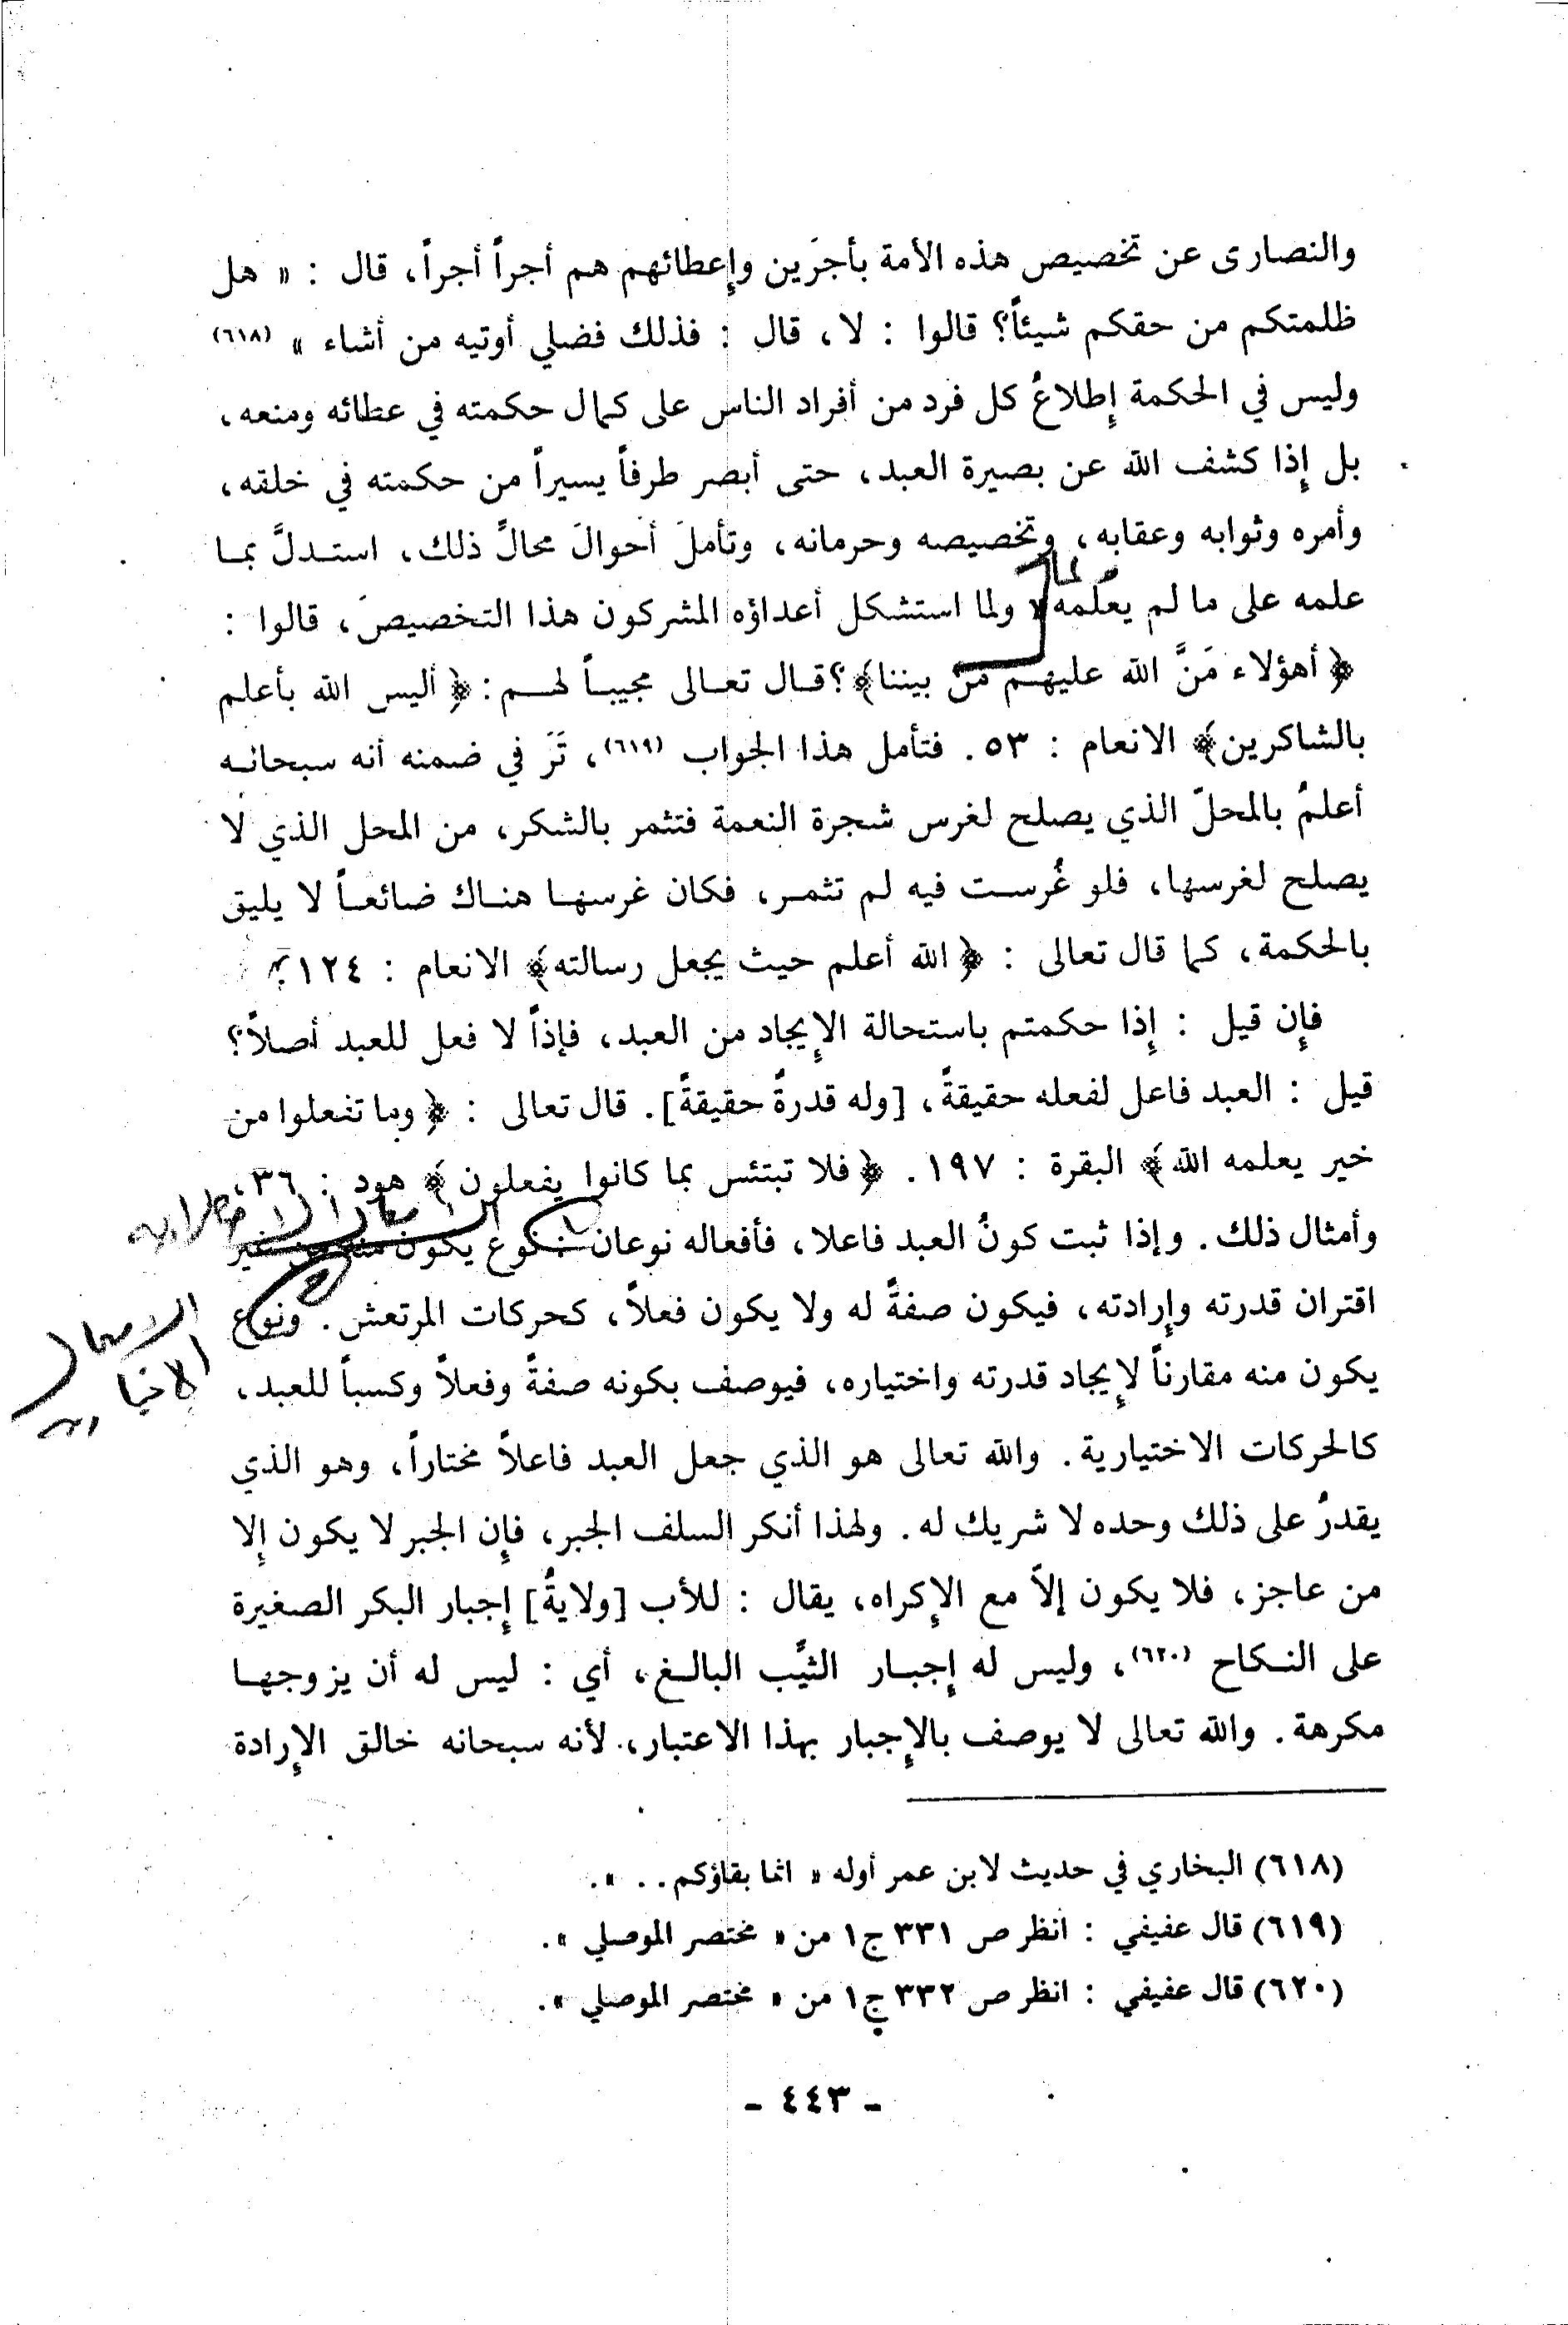 والنصارى عن تخصيص هذه الأمة بأجرَين وإعطائهم هم أجراً أجراً، قال : « هل
ظلمتكم من حقكم شيئاً؟ قالوا : لا ، قال : فذلك فضلي أوتيه من أشاء » (٦١٨)
وليس في الحكمة إطلاعُ كل فرد من أفراد الناس على كمال حكمته في عطائه ومنعه ،
بل إذا كشف الله عن بصيرة العبد ، حتى أبصر طرفاً يسيراً من حكمته في خلقه ،
وأمره وثوابه وعقابه ، وتخصيصه وحرمانه ، وتأملَ أحوالَ محالِّ ذلك ، استدلَّ بما
علمه على ما لم يعلمه ولما استشكل أعداؤه المشركون هذا التخصيصَ ، قالوا :
﴿ أهؤلاء مَنَّ الله عليهم من بيننا﴾؟ قال تعالى مجيباً لهم : ﴿ أليس الله بأعلم
بالشاكرين﴾ الانعام : ٥٣ . فتأمل هذا الجواب (٦١٩) ، تَرَ في ضمنه أنه سبحانه
أعلمُ بالمحلّ الذي يصلح لغرس شجرة النعمة فتثمر بالشكر ، من المحل الذي لا
يصلح لغرسها ، فلو غُرست فيه لم تثمر ، فكان غرسها هناك ضائعاً لا يليق
بالحكمة ، كما قال تعالى : ﴿ الله أعلم حيث يجعل رسالته﴾ الانعام : ١٢٤
فإن قيل : إذا حكمتم باستحالة الإيجاد من العبد ، فإذاً لا فعل للعبد أصلاً؟
قيل : العبد فاعل لفعله حقيقةً ، [وله قدرةٌ حقيقةً] . قال تعالى : ﴿ وما تفعلوا من
خير يعلمه الله﴾ البقرة : ١٩٧ . ﴿فلا تبتئس بما كانوا يفعلون﴾ هود : ٣٦ ،
وأمثال ذلك . وإذا ثبت كونُ العبد فاعلا ، فأفعاله نوعان : نوع يكون منه من غير
اقتران قدرته وإرادته ، فيكون صفةً له ولا يكون فعلاً ، كحركات المرتعش . ونوع
يكون منه مقارناً لإيجاد قدرته واختياره ، فيوصف بكونه صفةً وفعلاً وكسباً للعبد ،
كالحركات الاختيارية . والله تعالى هو الذي جعل العبد فاعلاً مختاراً ، وهو الذي
يقدرُ على ذلك وحده لا شريك له . ولهذا أنكر السلف الجبر ، فإن الجبر لا يكون إلا
من عاجز ، فلا يكون إلاَّ مع الإكراه ، يقال : للأب [ولايةُ] إجبار البكر الصغيرة
على النكاح (٦٢٠) ، وليس له إجبار الثيِّب البالغ ، أي : ليس له أن يزوجها
مكرهة . والله تعالى لا يوصف بالإجبار بهذا الاعتبار ، لأنه سبحانه خالق الإرادة
(٦١٨) البخاري في حديث لابن عمر أوله « انما بقاؤكم . . » .
(٦١٩) قال عفيفي : انظر ص ٣٣١ ج١ من « مختصر الموصلي » .
(٦٢٠) قال عفيفي : انظر ص ٣٣٢ ج١ من « مختصر الموصلي » .
- ٤٤٣ -